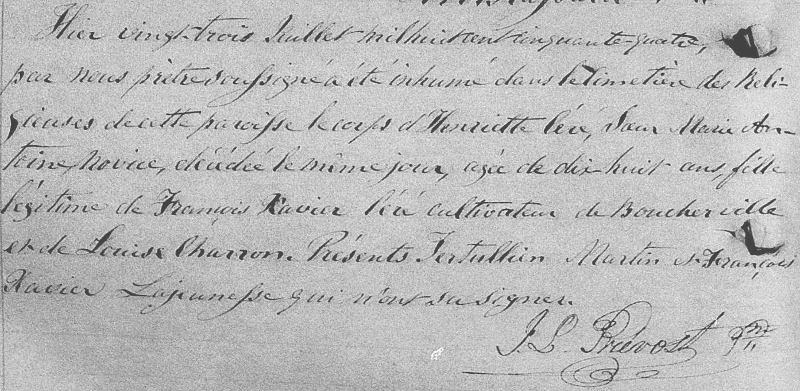 Hier vingt-trois Juillet mil huit cent cinquante-quatre,
par nous prêtre soussigné a été inhumé dans le Cimetière des Reli-
gieuses de cette paroisse le corps d'Henriette Céré, Sœur Marie An-
toine, Novice, décédée le même jour, agée de dix huit ans, fille
légitime de François Xavier Céré cultivateur de Boucherville
et de Louise Charron. Présents Tertullien Martin et François
Xavier Lajeunesse qui n'ont su signer.
J. L. Prévost Ptre